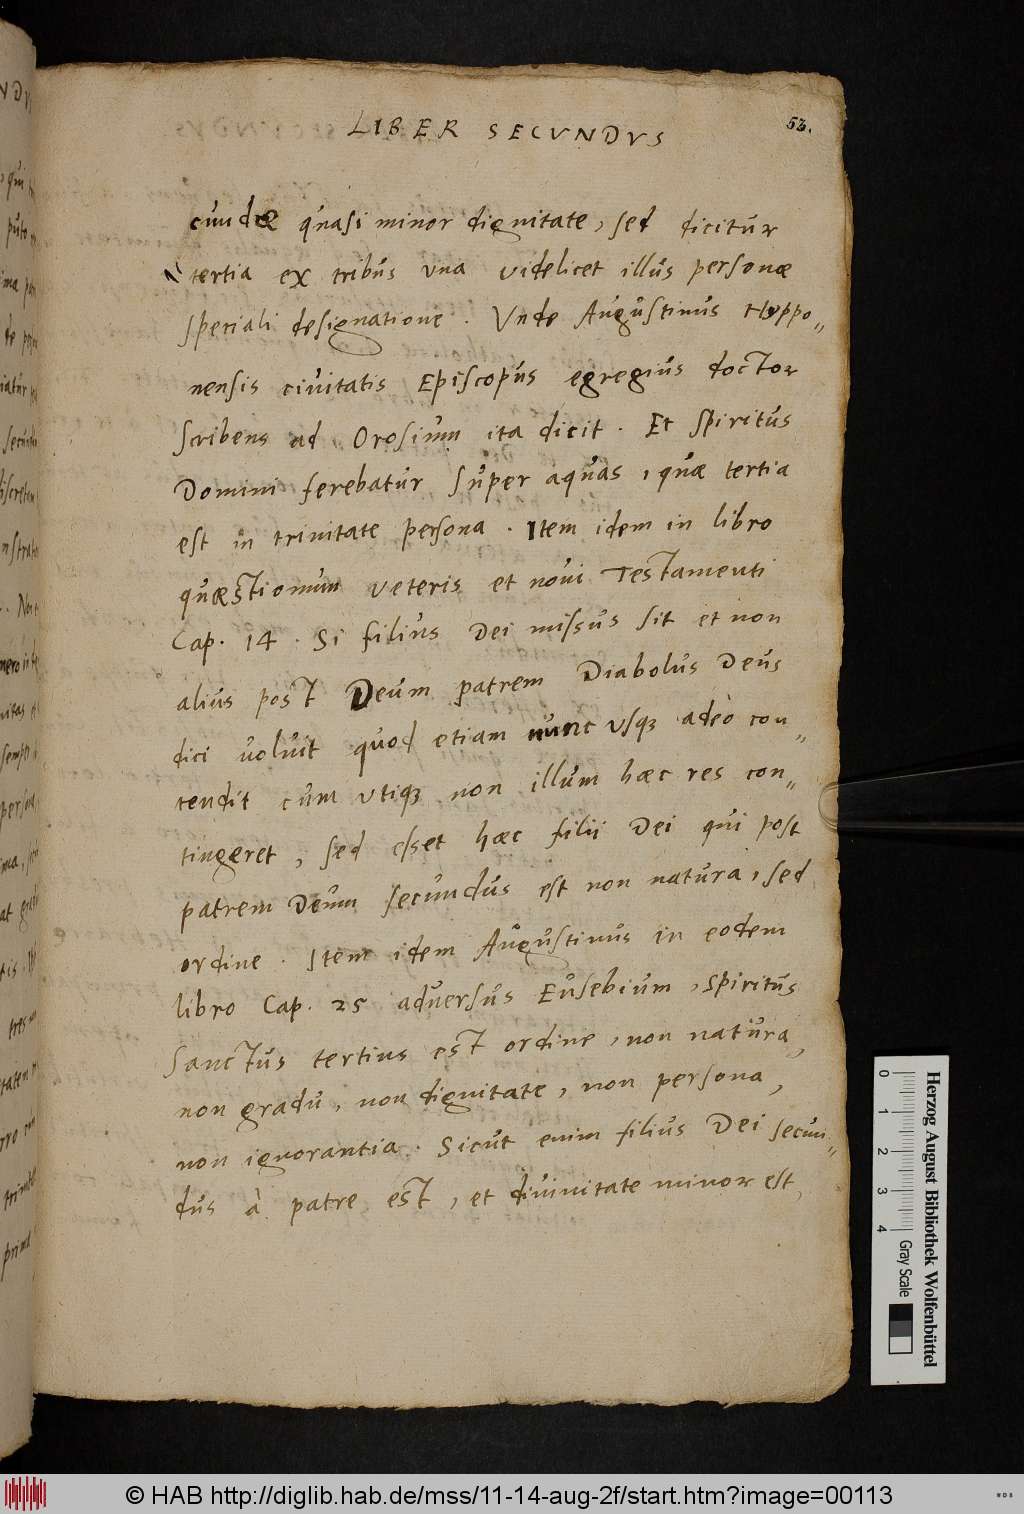 LIBER SECVNDVS
53.
cundæ quasi minor dignitate, sed dicitur
tertia ex tribus vna videlicet illus personæ
speciali designatione. Vnde Augustinus Hyppo„
nensis ciuitatis Episcopus egregius doctor
scribens ad Orosium ita dicit. Et spiritus
Domini ferebatur super aquas, quæ tertia
est in trinitate persona. Item idem in libro
quæstionum veteris et noui Testamenti
Cap. 14. Si filius Dei missus sit et non
alius post Deum patrem Diabolus Deus
dici voluit quod etiam nunc vsqȝ adeò con„
tendit cum vtiqȝ non illum hæc res con„
tingeret, sed esset hæc filii Dei qui post
patrem Deum secundus est non natura, sed
ordine. Item idem Augustinus in eodem
libro Cap. 25 aduersus Eusebium, spiritus
Sanctus tertius est ordine, non natura,
non gradu, non dignitate, non persona,
non ignorantia. Sicut enim filius Dei secun„
dus à patre est, et diuinitate minor est,
0 1 2 3 4
Gray Scale
Herzog August Bibliothek Wolfenbüttel
© HAB http://diglib.hab.de/mss/11-14-aug-2f/start.htm?image=00113